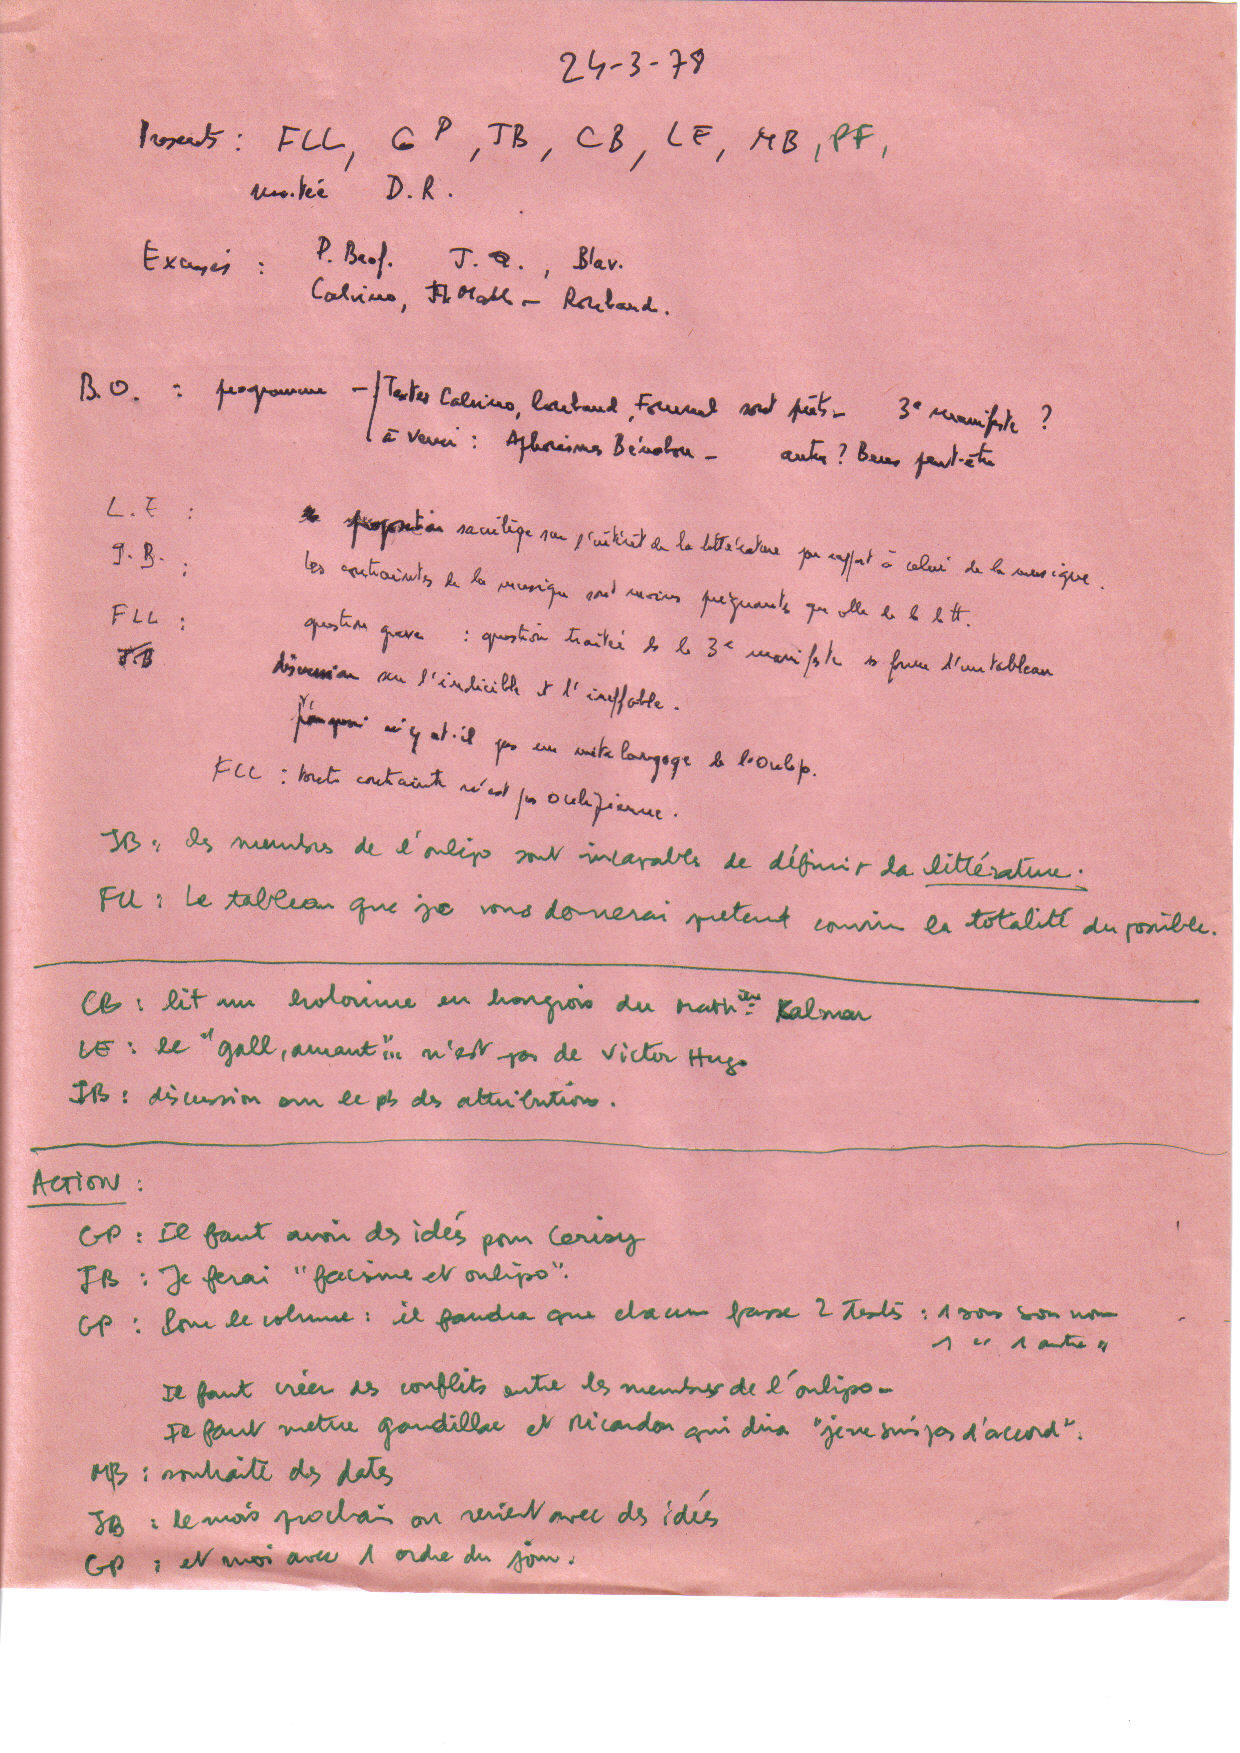 24-3-78
Presents : FLL, GP, JB, CB, LE, MB, PF,
invitée D.R.
Excusés : P. Braf. J.Q., Blav.
Calvino, Math - Roubaud.
B.O. : programme - Textes Calvino, Roubaud, Fournel sont prêts - 3e manifeste ?
à venir : Aphorismes Bénabou - autre ? Bens peut-être
L.E : proposition sacrilège sur l'intérêt de la littérature par rapport à celui de la musique.
J.B. : Les contraintes de la musique sont moins prégnantes que celle de la litt.
FLL : question grave : question traitée ds le 3e manifeste ss forme d'un tableau
J.B discussion sur l'indicible et l'ineffable.
Pourquoi n'y at-il pas un méta langage de l'Oulipo.
FLL : toute contrainte n'est pas oulipienne.
JB : les membres de l'oulipo sont incapables de définir la littérature.
FLL : Le tableau que je vous donnerai prétend couvrir la totalité du possible.
CB : lit un holorime en hongrois du mathien Kalmar
LE : le "gall, amant"... n'est pas de Victor Hugo
JB : discussion sur le pb des attributions.
ACTION :
GP : Il faut avoir des idées pour Cerisy
JB : Je ferai "facisme et oulipo".
GP : Pour le volume : il faudra que chacun fasse 2 textes : 1 sous son nom
1 " 1 autre "
Il faut créer des conflits entre les membres de l'oulipo -
Il faut mettre gandillac et Ricardou qui dira "je ne suis pas d'accord".
MB : souhaite des dates
JB : le mois prochain on revient avec des idées
GP : et moi avec 1 ordre du jour.